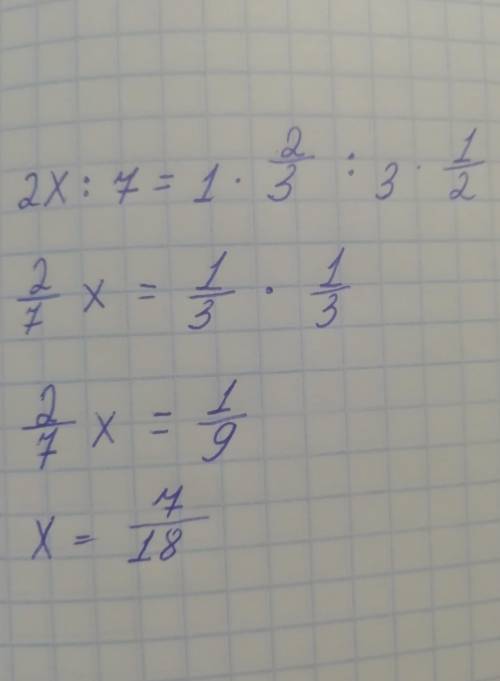 2x : 7 = 1 · 2/3 : 3 · 1/2
2/7 x = 1/3 · 1/3
2/7 x = 1/9
x = 7/18